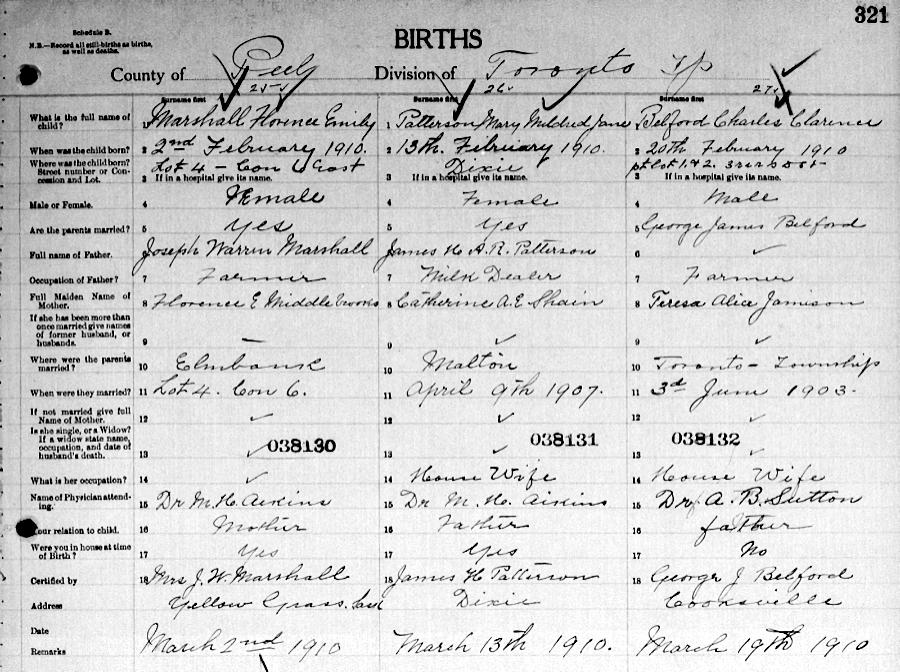 321
Schedule B.
N.B.—Record all still-births as births,
as well as deaths.
BIRTHS
County of Peel Division of Toronto Tp
25 26 27
Surname first Surname first Surname first
What is the full name of
child? 1 Marshall Florence Emily 1 Patterson Mary Mildred Jane 1 Belford Charles Clarence
When was the child born? 2 2nd February 1910. 2 13th. February 1910. 2 20th February 1910
Where was the child born?
Street number or Con-
cession and Lot. Lot 4 - Con 6 East Dixie pt Lot 1 & 2.
3 If in a hospital give its name. 3 If in a hospital give its name. 3 If in a hospital give its name.
Male or Female. 4 Female 4 Female 4 Male
Are the parents married? 5 Yes 5 Yes 5 George James Belford
Full name of Father. 6 Joseph Warrin Marshall 6 James H. A. R. Patterson 6 ✓
Occupation of Father? 7 Farmer 7 Milk Dealer 7 Farmer
Full Maiden Name of
Mother. 8 Florence E Middlebrooks 8 Catherine A. E. Shain 8 Teresa Alice Jamison
If she has been more than
once married give names
of former husband, or
husbands. 9 — 9 ✓ 9 ✓
Where were the parents
married? 10 Elmbank 10 Malton 10 Toronto - Township
When were they married? 11 Lot 4. Con 6. 11 April 9th 1907. 11 3rd June 1903.
If not married give full
Name of Mother. 12 ✓ 12 ✓ 12 ✓
Is she single, or a Widow?
If a widow state name,
occupation, and date of
husband's death. 13 ✓ 038130 13 ✓ 038131 13 ✓ 038132
What is her occupation? 14 ✓ 14 House Wife 14 House Wife
Name of Physician attend-
ing. 15 Dr M. H. Aikins 15 Dr M. H. Aikins 15 Dr. A. B. Sutton
Your relation to child. 16 Mother 16 Father 16 father
Were you in house at time
of Birth? 17 Yes 17 Yes 17 No
Certified by 18 Mrs J. W. Marshall 18 James H Patterson 18 George J Belford
Address Yellow Grass. Sask Dixie Cooksville
Date
Remarks March 2nd 1910 March 13th 1910. March 19th 1910